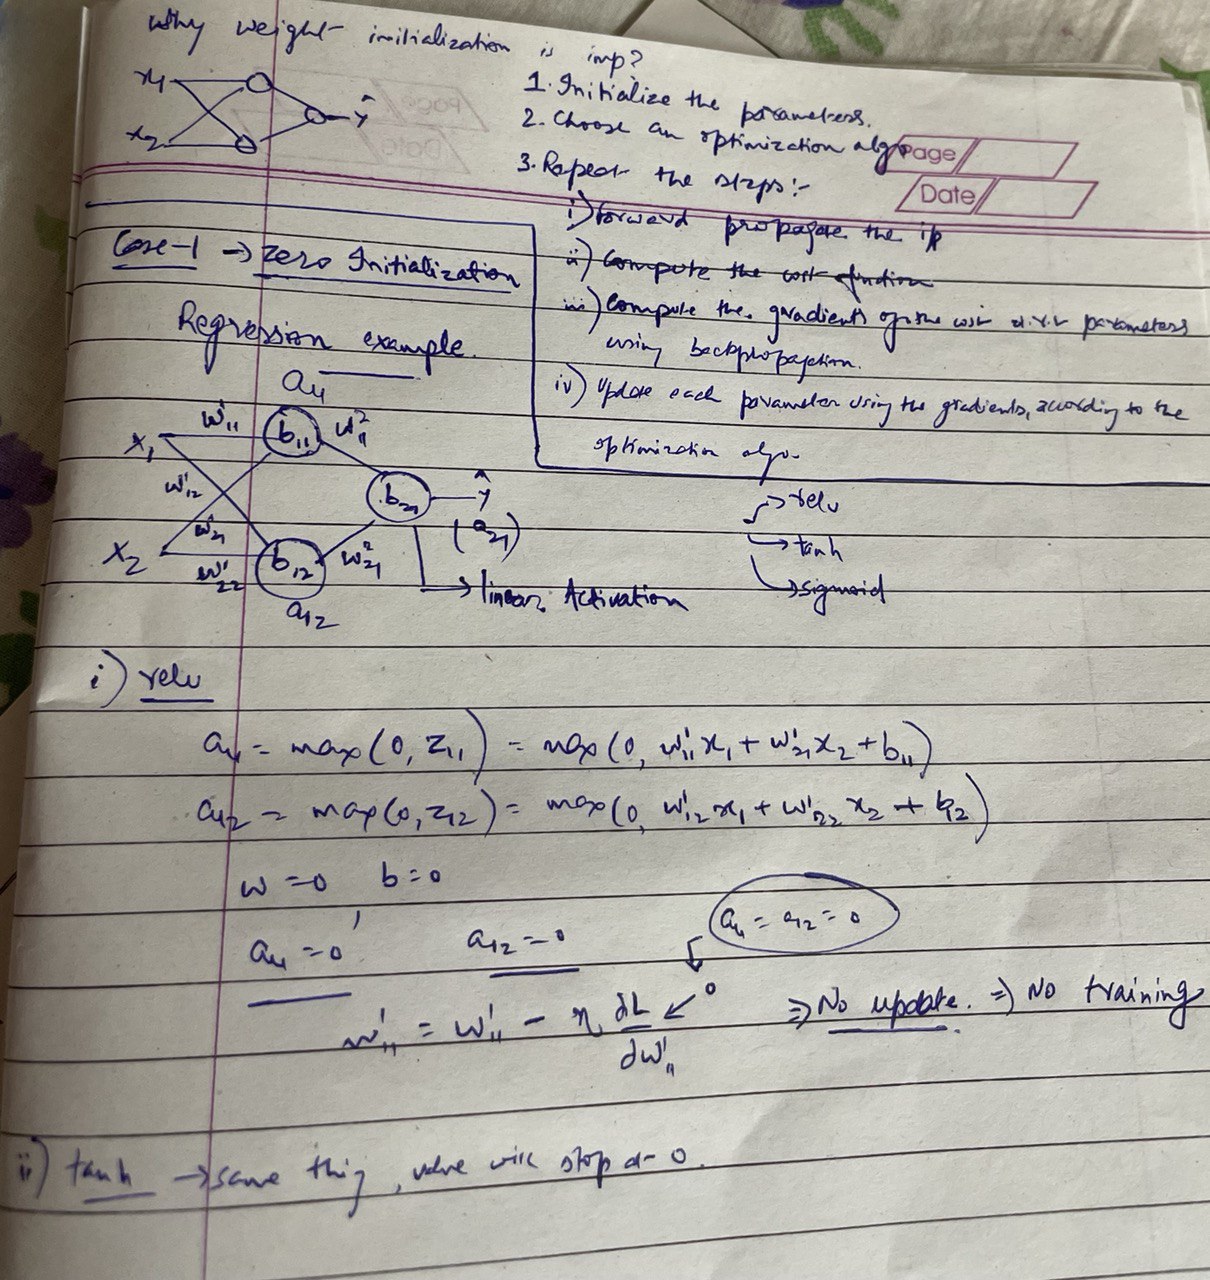 Why weight initialization is imp?
x₁
x₂
ŷ
1. Initialize the parameters.
2. Choose an optimization algo
3. Repeat the steps:-
Page
Date
i) forward propagate the i/p
ii) Compute the cost function
iii) Compute the gradients of the cost w.r.t parameters
using backpropagation.
iv) Update each parameter using the gradients, according to the
optimization algo.
Case-1 → Zero Initialization
Regression example.
a₁₁
x₁ w¹₁₁ b₁₁ w²₁₁
w¹₁₂ b₂₁ ŷ
(a₂₁)
w¹₂₁
x₂ w¹₂₂ b₁₂ w²₂₁
a₁₂
→ linear Activation
→ relu
→ tanh
→ sigmoid
i) relu
a₁₁ = max(0, z₁₁) = max(0, w¹₁₁x₁ + w¹₂₁x₂ + b₁₁)
a₁₂ = max(0, z₁₂) = max(0, w¹₁₂x₁ + w¹₂₂x₂ + b₁₂)
w = 0 b = 0
a₁₁ = 0 , a₁₂ = 0 a₁₁ = a₁₂ = 0
w¹₁₁ = w¹₁₁ - η ∂L/∂w¹₁₁ ↙ 0 ⇒ No update. ⇒ No training
ii) tanh → same thing, value will stop at 0.